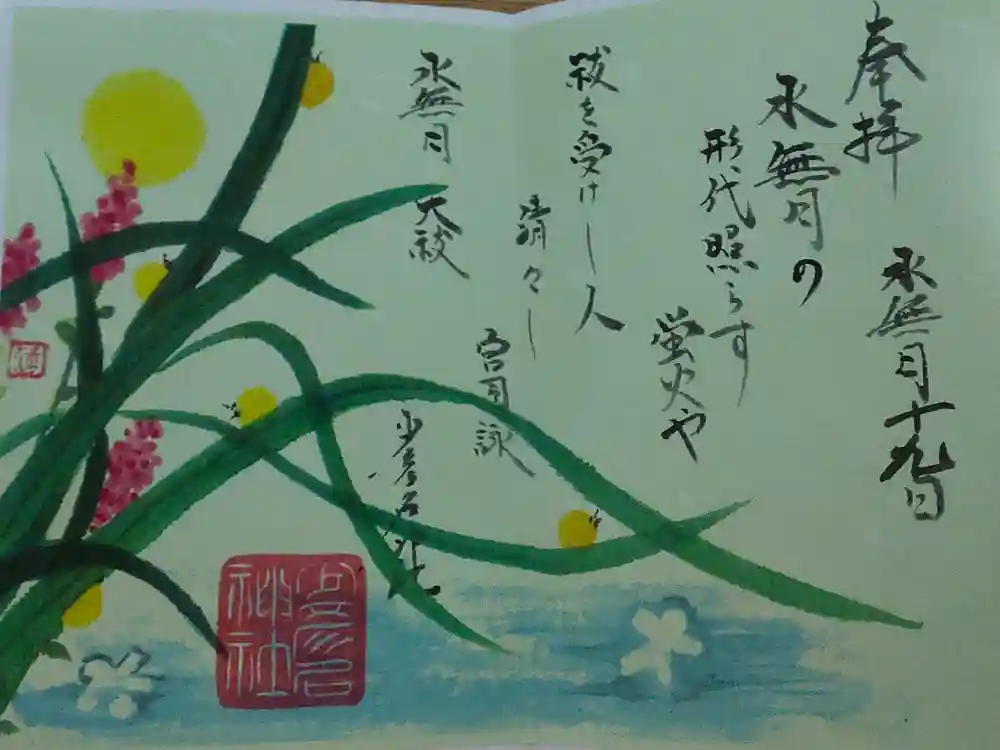 奉拝
水無月十九日
水無月の
形代照らす
蛍火や
祓を受けし人
清々し
水無月 大祓
宮司詠
少彦名神社
少彦名
神社